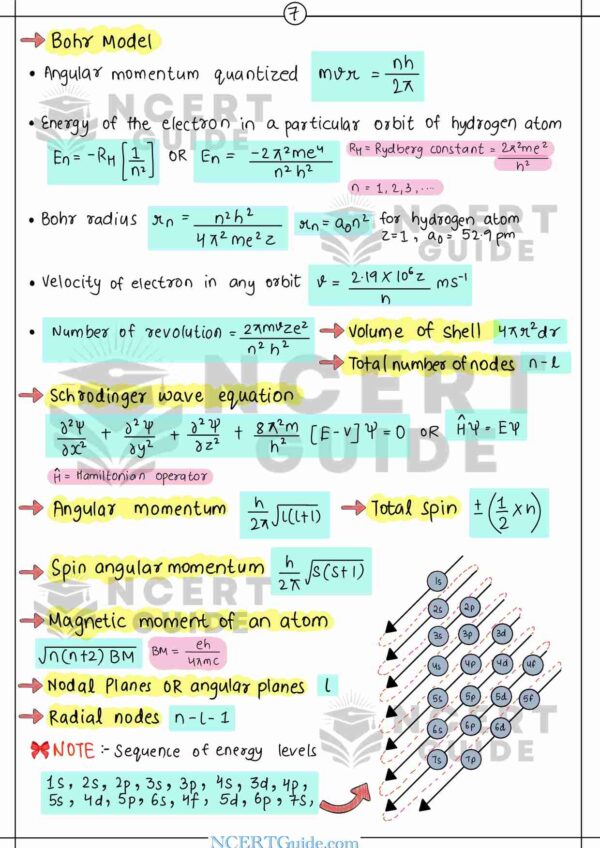 7
→ Bohr Model
• Angular momentum quantized mvr = nh/2π
• Energy of the electron in a particular orbit of hydrogen atom
En = -RH [1/n²] OR En = -2π²me⁴/n²h² RH = Rydberg constant = 2π²me²/h²
n = 1, 2, 3, ...
• Bohr radius rn = n²h²/4π²me²z rn = a₀n² for hydrogen atom z=1, a₀ = 52.9 pm
• Velocity of electron in any orbit v = 2.19 X 10⁶z/n ms⁻¹
• Number of revolution = 2πmvze²/n²h² → Volume of shell 4πr²dr
→ Total number of nodes n-l
→ Schrodinger wave equation
∂²Ψ/∂x² + ∂²Ψ/∂y² + ∂²Ψ/∂z² + 8π²m/h² [E-V]Ψ = 0 OR ĤΨ = EΨ
Ĥ = Hamiltonian operator
→ Angular momentum h/2π √l(l+1) → Total spin ±(1/2 × n)
→ Spin angular momentum h/2π √s(s+1)
→ Magnetic moment of an atom
√n(n+2) BM BM = eh/4πmc
→ Nodal Planes OR angular planes l
→ Radial nodes n-l-1
NOTE :- Sequence of energy levels
1s, 2s, 2p, 3s, 3p, 4s, 3d, 4p,
5s, 4d, 5p, 6s, 4f, 5d, 6p, 7s,
1s
2s 2p
3s 3p 3d
4s 4p 4d 4f
5s 5p 5d 5f
6s 6p 6d
7s 7p
NCERT GUIDE
NCERT GUIDE
NCERT GUIDE
NCERT GUIDE
NCERT GUIDE
NCERTGuide.com